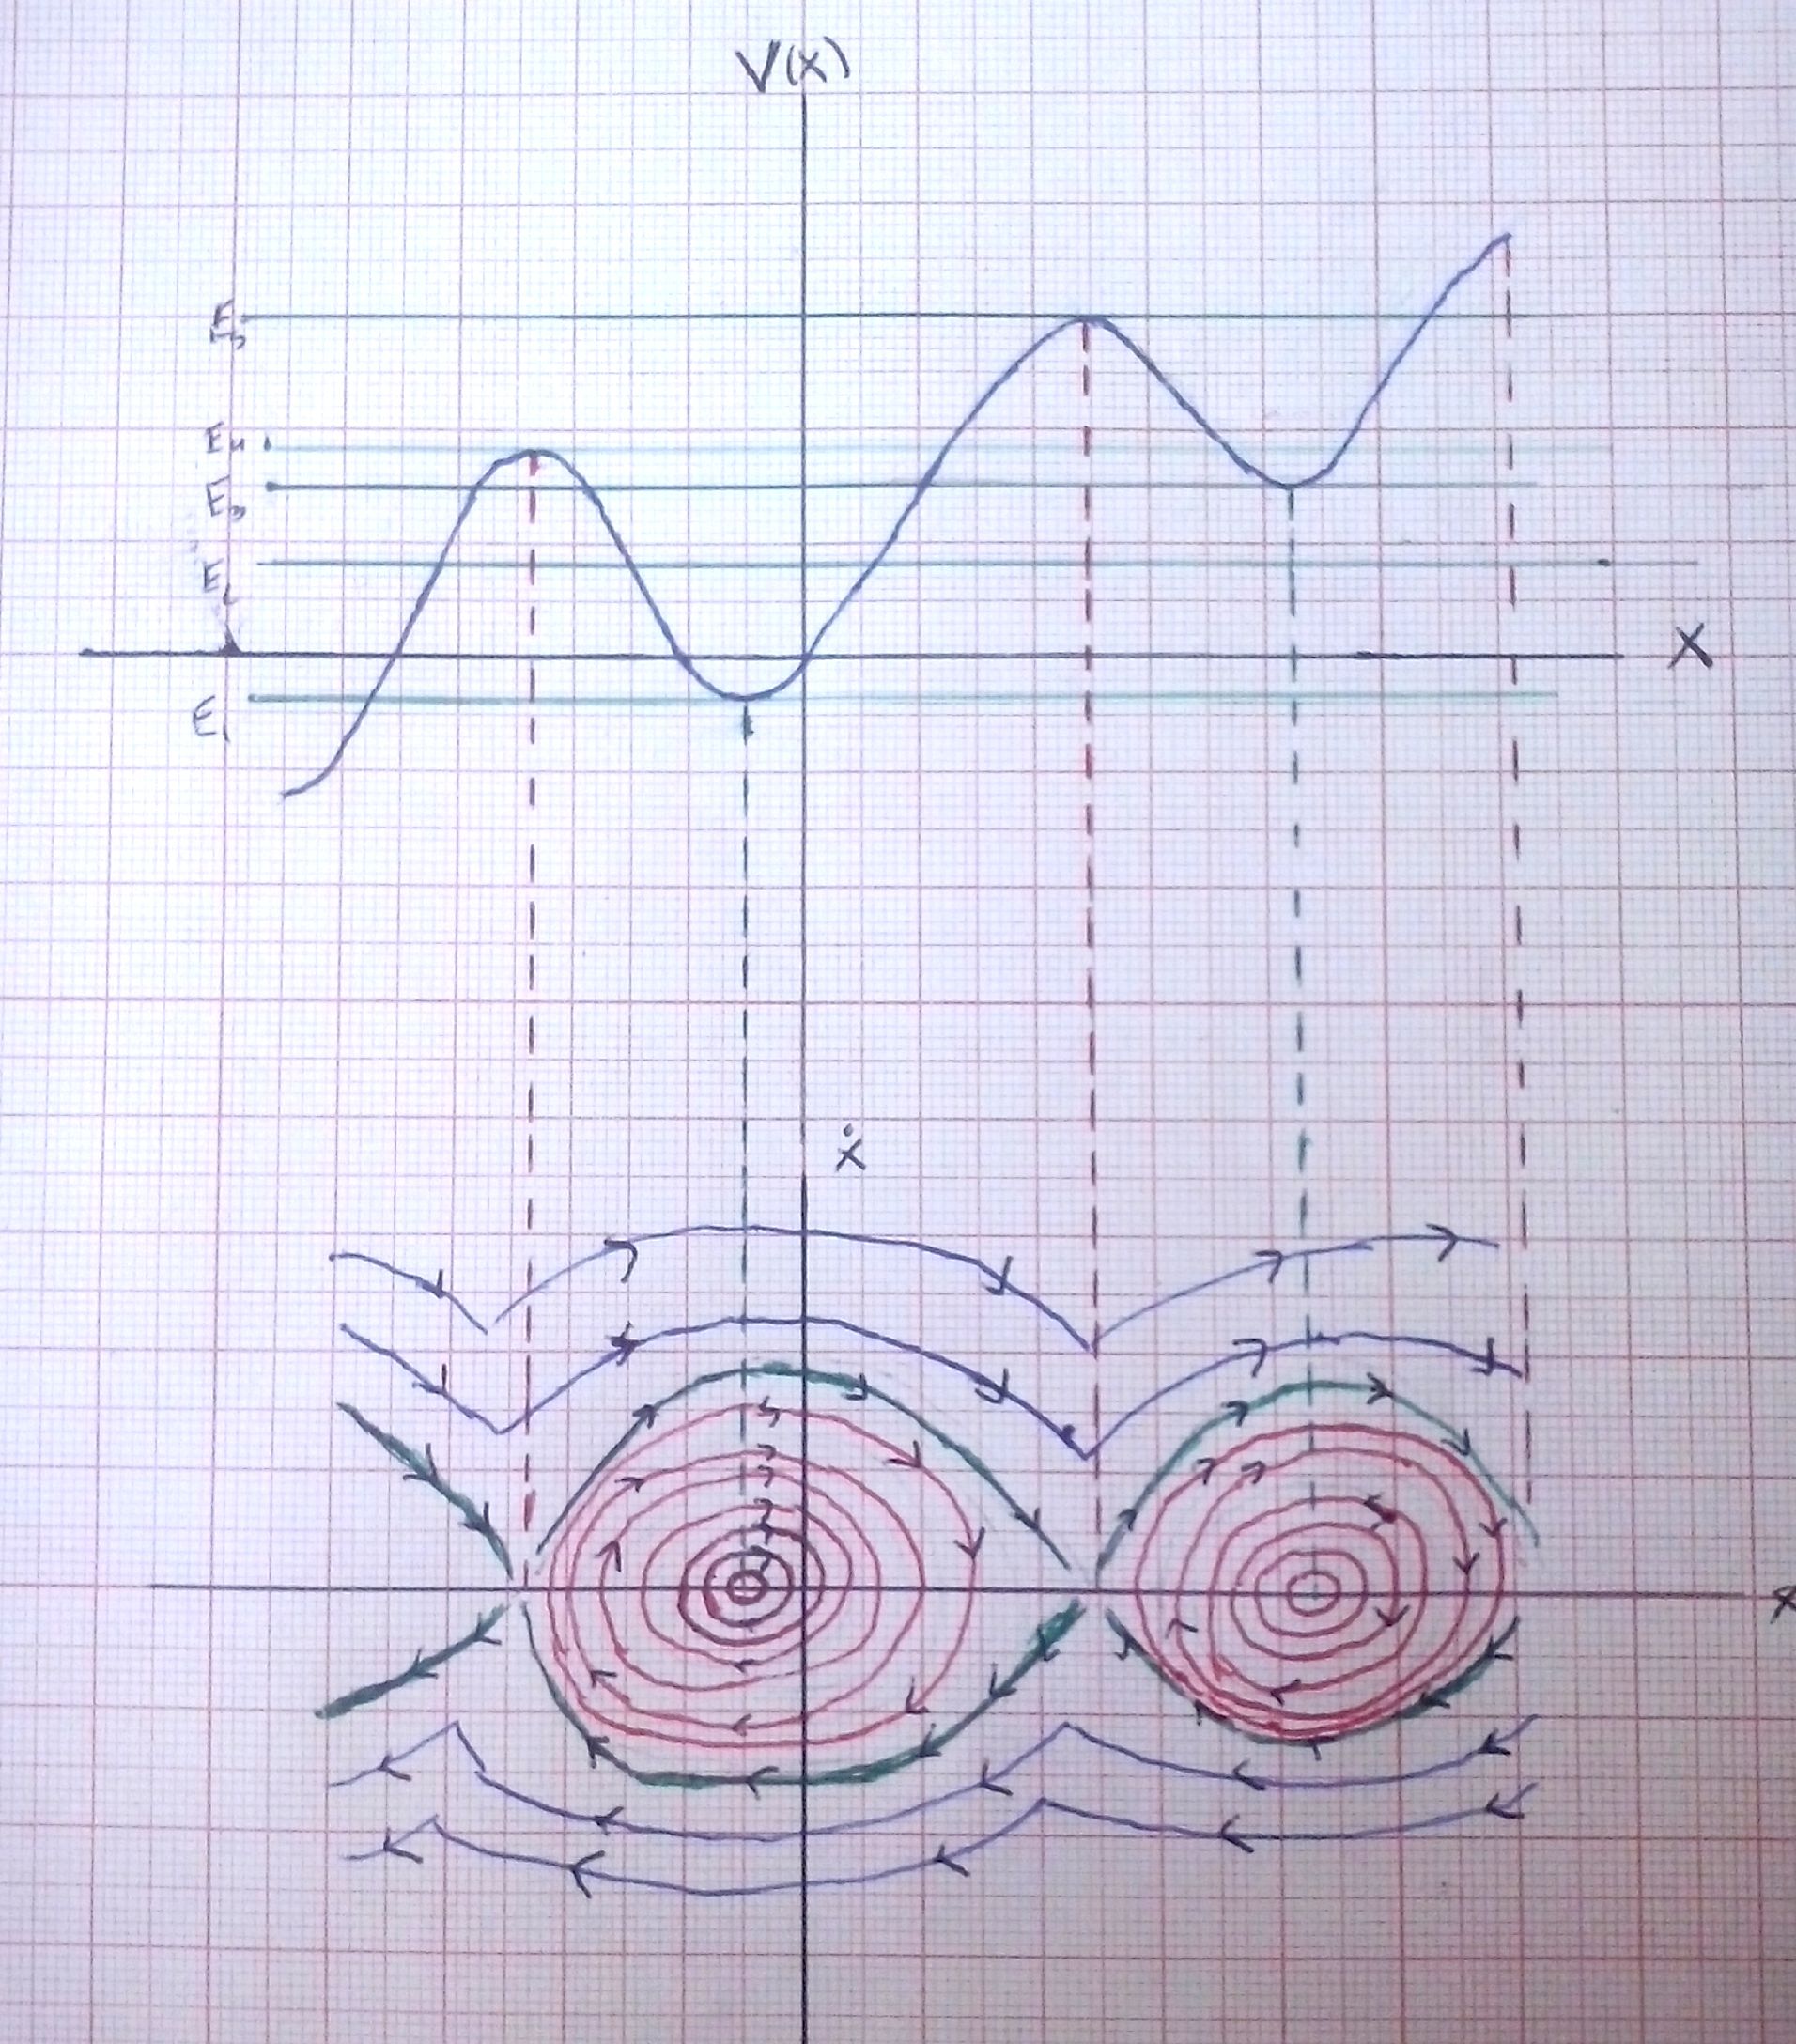 V(x)
E₅
E₄
E₃
E₂
X
E₁
ẋ
x